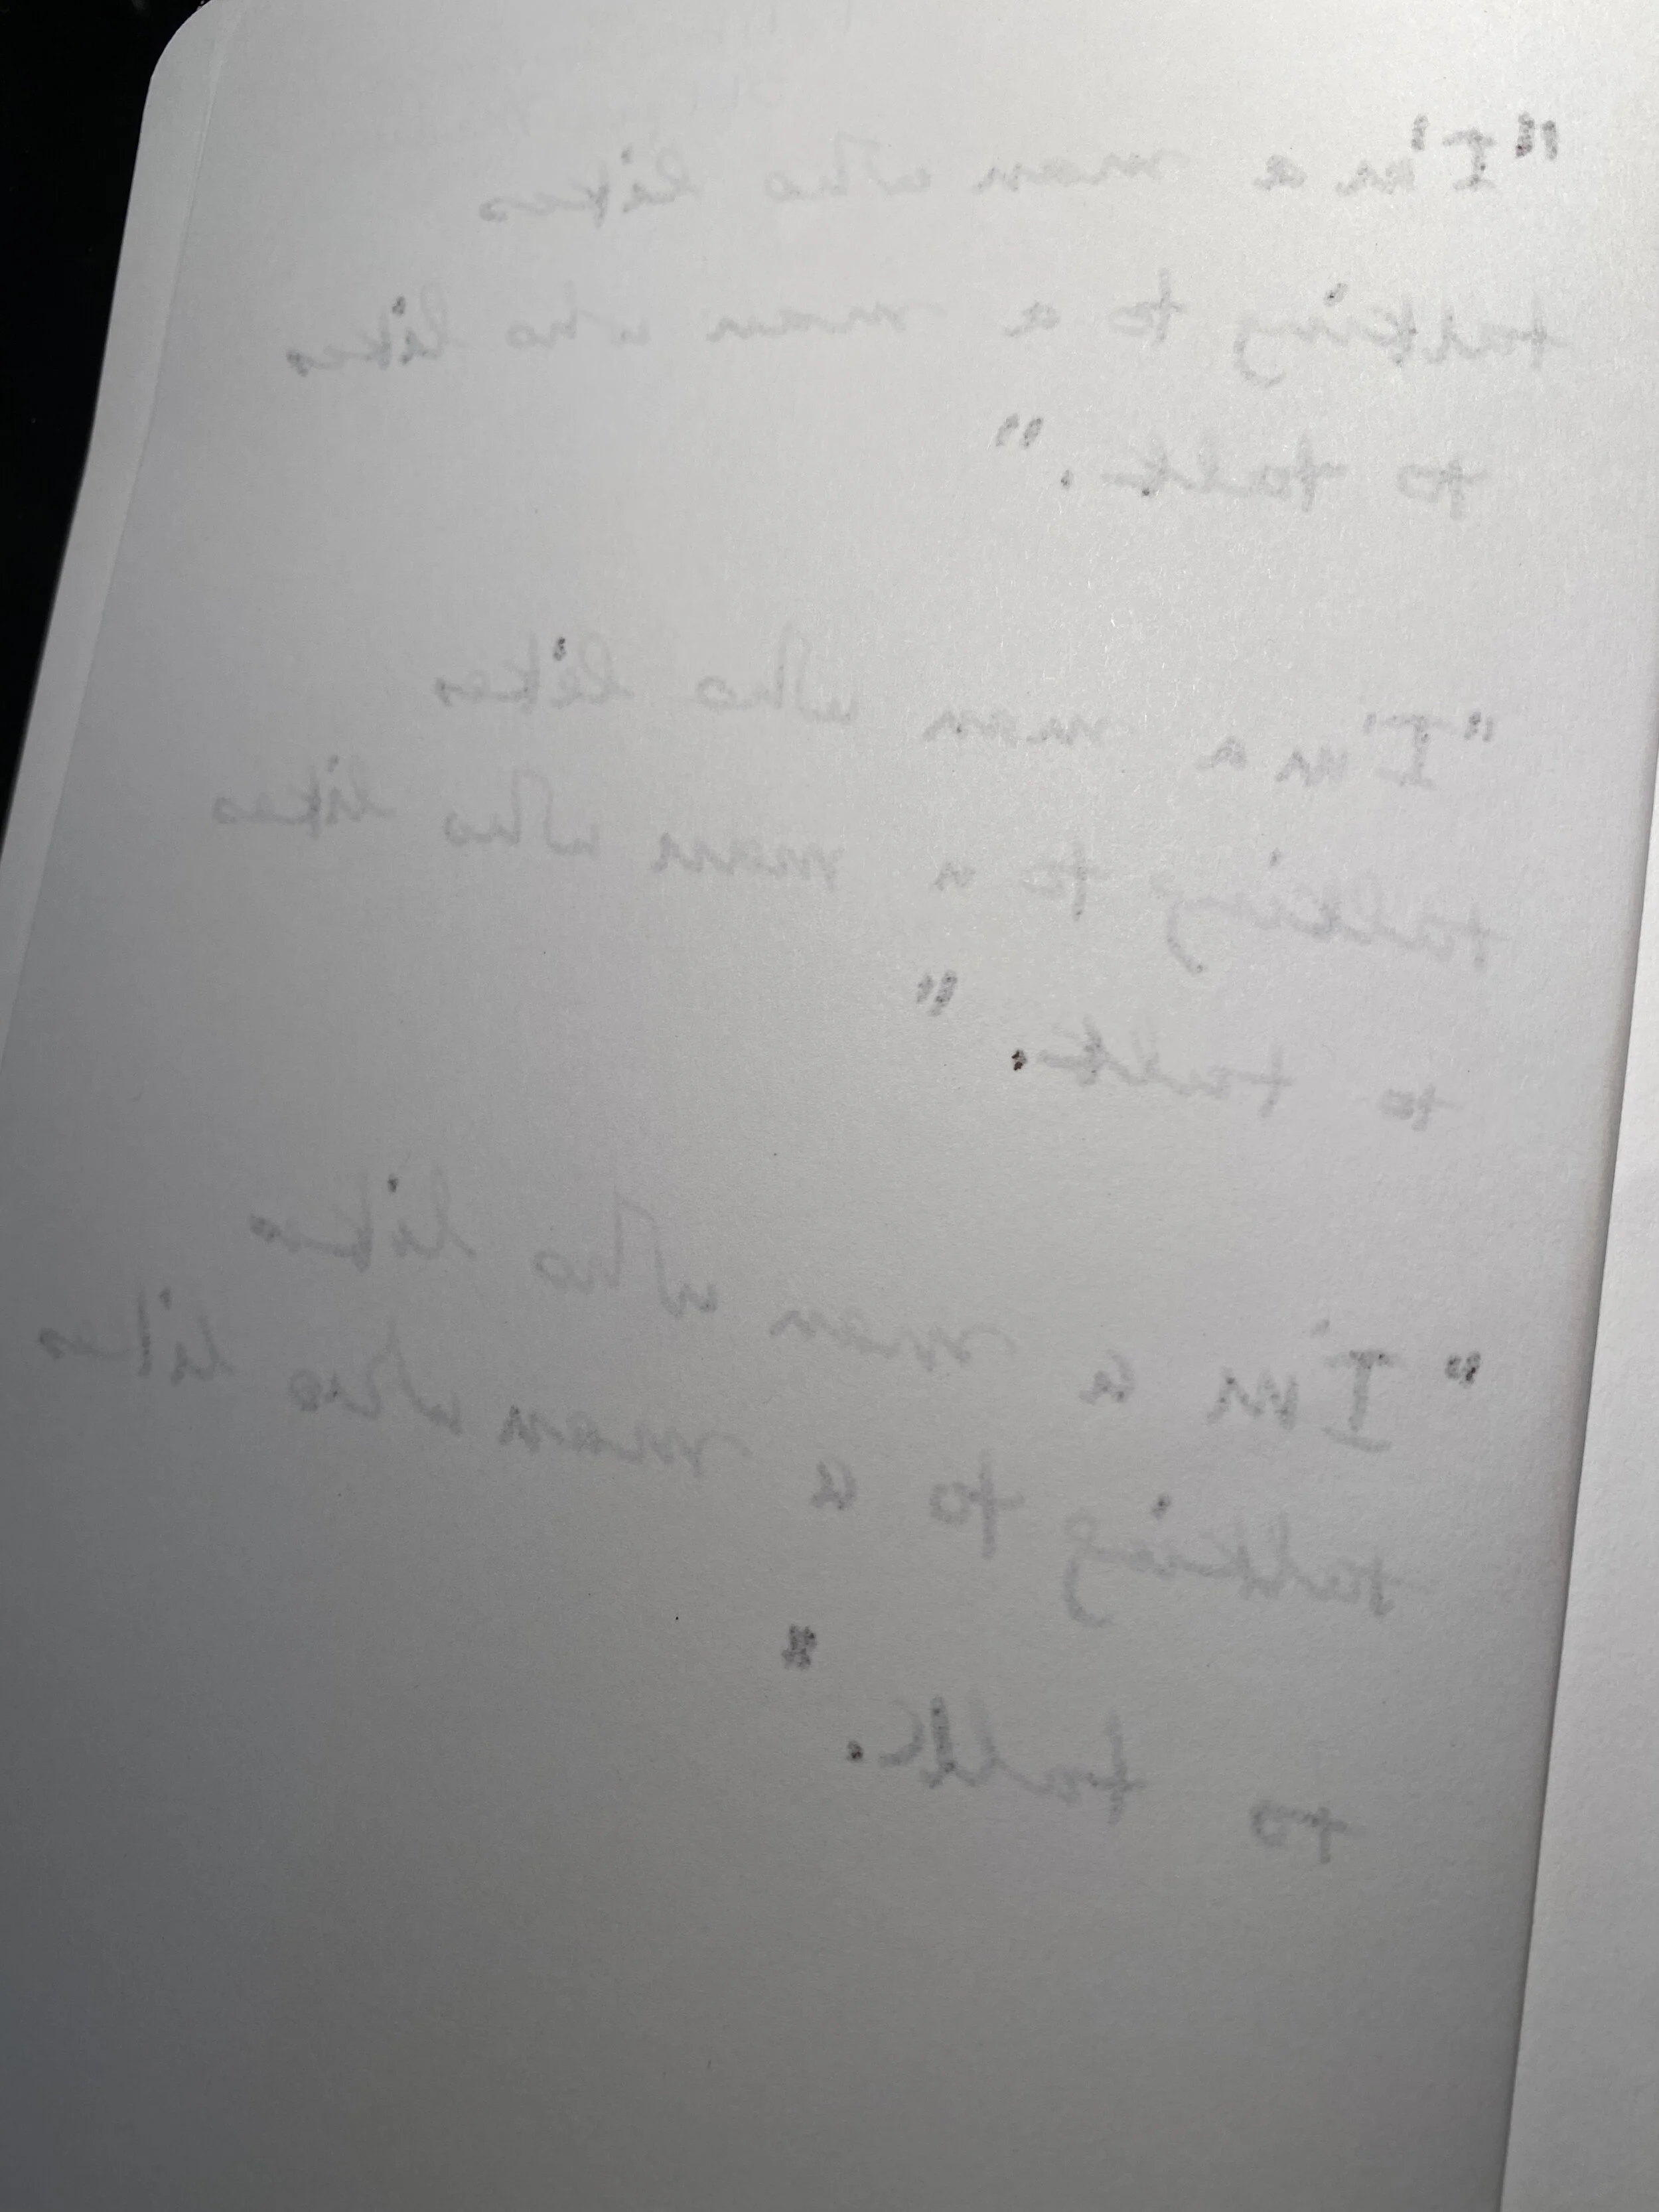 "I'm a man who likes
talking to a man who likes
to talk."
"I'm a man who likes
talking to a man who likes
to talk."
"I'm a man who likes
talking to a man who likes
to talk."